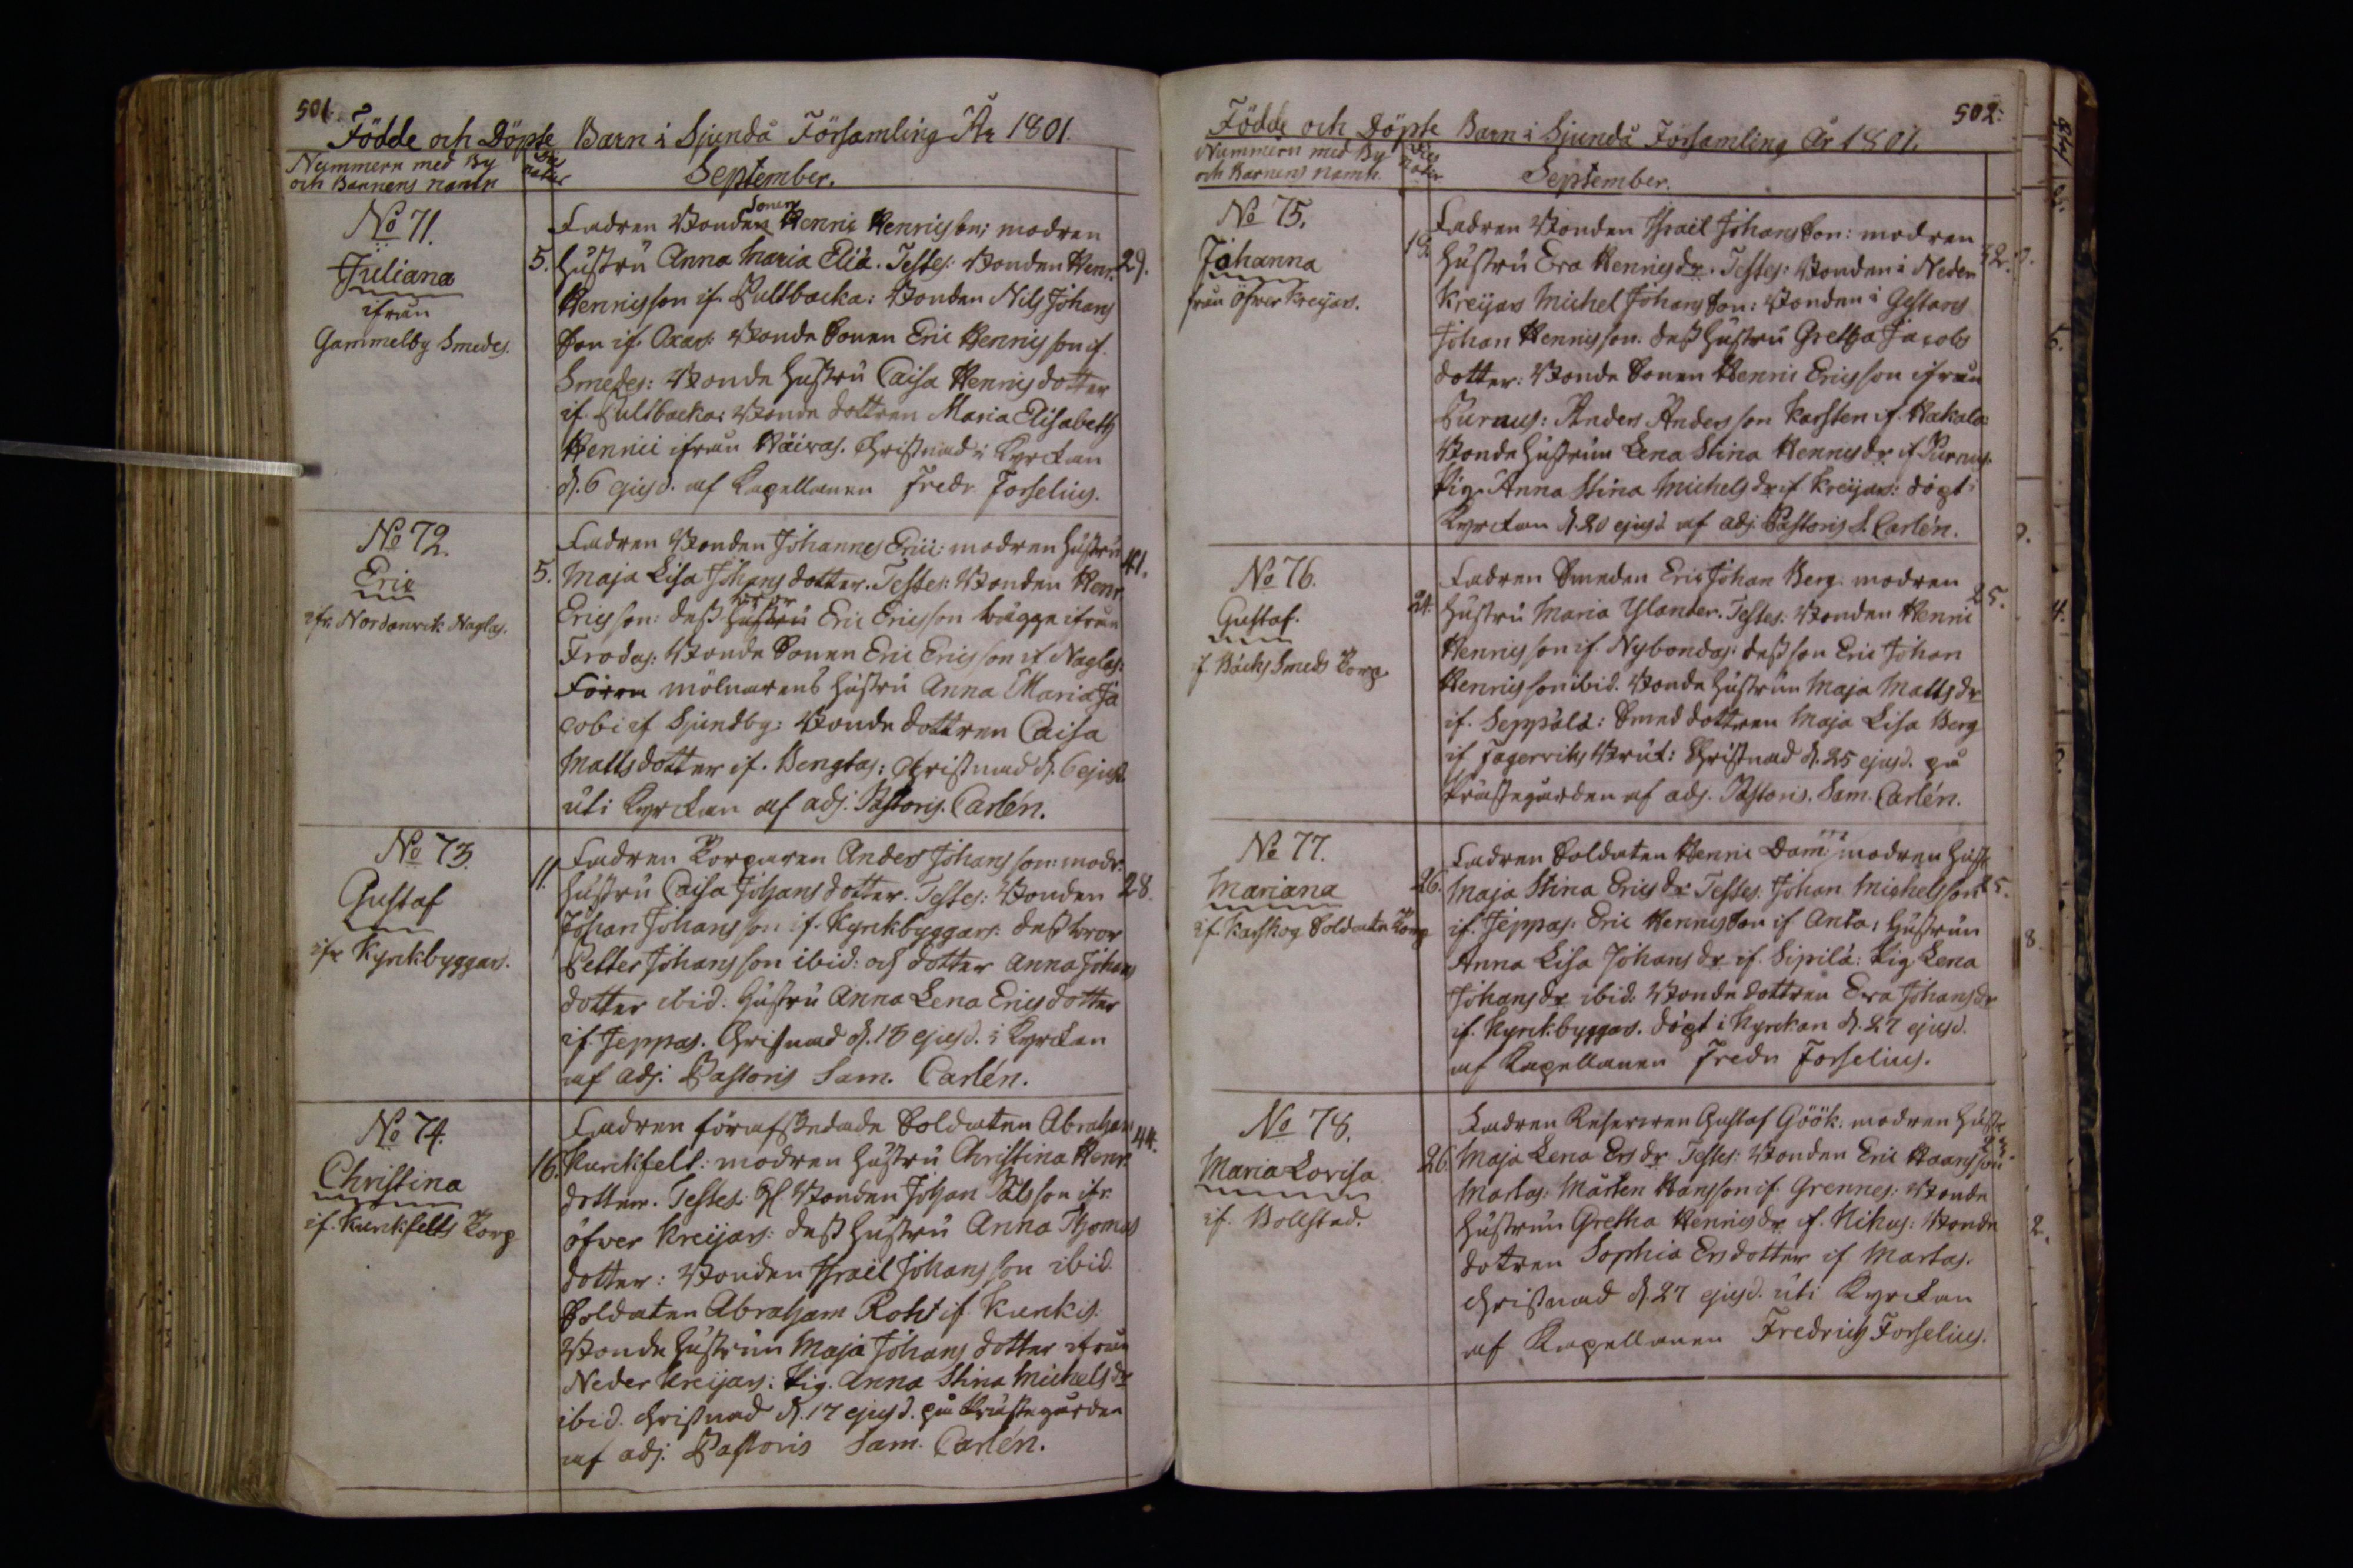 501.
Födde och Döpte Barn i Sjundå Församling År 1801.
Nummern med By
och Barnens namn
Dies
natus
September.
No 71.
Juliana
ifrån
Gammelby Smedes.
5.
29.
Fadren Bonden Sonen Henric Henricson; modren
Hustru Anna Maria Eliæ. Testes: Bonden Henr.
Henricsson if. Pultbacka: Bonden Nils Johans
Son if. Oxars: Bonde Sonen Eric Henricsson if.
Smedes: Bonde hustru Caisa Henricsdotter
if. Pultbacka: Bonde dottren Maria Elisabeth
Henrici ifrån Väivas. Christnad i Kyrckan
d. 6 ejusd. af Kapellanen Fredr. Forselius.
No 72.
Eric
ifr. Nordanvik Naglas.
5.
41.
Fadren Bonden Johannes Erici: modren hustru
Maja Lisa Johansdotter. Testes: Bonden Henr.
Ericsson: dess hustru bror Eric Ericsson bägge ifrån
Frodas: Bonde Sonen Eric Ericsson if. Naglas:
Förra mölnarens hustru Anna Maria Ja
cobi if Sjundby: Bonde dottren Caisa
Mattsdotter if. Bengtas: Christnad d. 6 ejusd.
uti Kyrckan af adj. Pastoris. Carlén.
No 73.
Gustaf
ifr Kyrkbyggars.
11.
28.
Fadren Torparen Anders Johansson: modr.
hustru Caisa Johansdotter. Testes: Bonden
Johan Johansson if. Kyrckbyggars: dess bror
Petter Johansson ibid: och dotter Anna Johans
dotter ibid. hustru Anna Lena Ericsdotter
if. Jeppas. Christnad d. 13 ejusd. i Kyrckan
af adj. Pastoris Sam. Carlén.
No 74.
Christina
if. Kunckfelts Torp
16.
44.
Fadren förafskedade Soldaten Abraham
Kunckfelt: modren hustru Christina Henr.
dotter. Testes: Gl Bonden Johan Pålsson ifr.
öfver Kreijars: dess hustru Anna Thomas
dotter: Bonden Israël Johansson ibid
Soldaten Abraham Roht if. Kunkis:
Bonde hustrun Maja Johansdotter ifrån
Neder Kreijars: Pig. Anna Stina Michelsdr
ibid. christnad d. 17 ejusd. på Prästegården
af adj. Pastoris Sam. Carlén.
502.
Födde och Döpte Barn i Sjundå Församling År 1801.
Nummern med By
och Barnens namn.
Dies
natus
September.
No 75.
Johanna
från Öfver Kreijars.
19.
32.
Fadren Bonden Israël Johans Son: modren
hustru Eva Henricsdr. Testes: Bonden i Neder
Kreijars Michel Johans Son: Bonden i Gestans
Johan Henricsson. dess hustru Gretha Jacobs
dotter: Bonde Sonen Henric Ericsson ifrån
Purnus: Anders Andersson Karsten if. Hakala:
Bonde hustrun Lena Stina Henricsdr if. Purnus.
Pig. Anna Stina Michelsdr if Kreijars: döpt i
Kyrckan d. 20 ejusd af adj. Pastoris S. Carlén.
No 76.
Gustaf.
if Bäcks Smeds Torp.
24.
25.
Fadren Smeden Eric Johan Berg. modren
hustru Maria Ylander. Testes. Bonden Henric
Henricsson if. Nybondas: dess son Eric Johan
Henricsson ibid. Bonde hustrun Maja Mattsdr
if. Seppälä: Smed dottren Maja Lisa Berg
if Fagerviks Bruk: Christnad d. 25 ejusd. på
Prästegården af adj. Pastoris. Sam. Carlén.
No 77.
Mariana
if. Karskog Soldate Torp
26.
25.
Fadren Soldaten Henric Dam: modren hust.
Maja Stina Ericsdr. Testes. Johan Michelsson
if. Jeppas: Eric Henricsson if Anta: hustrun
Anna Lisa Johansdr if. Sipilä: Pig Lena
Johansdr ibid: Bonde dottren Eva Johansdr
if. Kyrckbyggas. döpt i Kyrckan d. 27 ejusd.
af Kapellanen Fredr Forselius.
No 78.
Maria Lovisa
if. Bollstad.
26
Fadren Reserven Gustaf Göök. modren hustr
Maja Lena Ersdr. Testes: Bonden Eric Haansson
Martas: Mårten Hansson if. Grennes: Bonde
hustrun Gretha Henricsdr if. Nikus: Bonde
dotren Sophia Ersdotter if Martas.
christnad d. 27 ejusd. uti Kyrckan
af Kapellanen Fredrich Forselius.